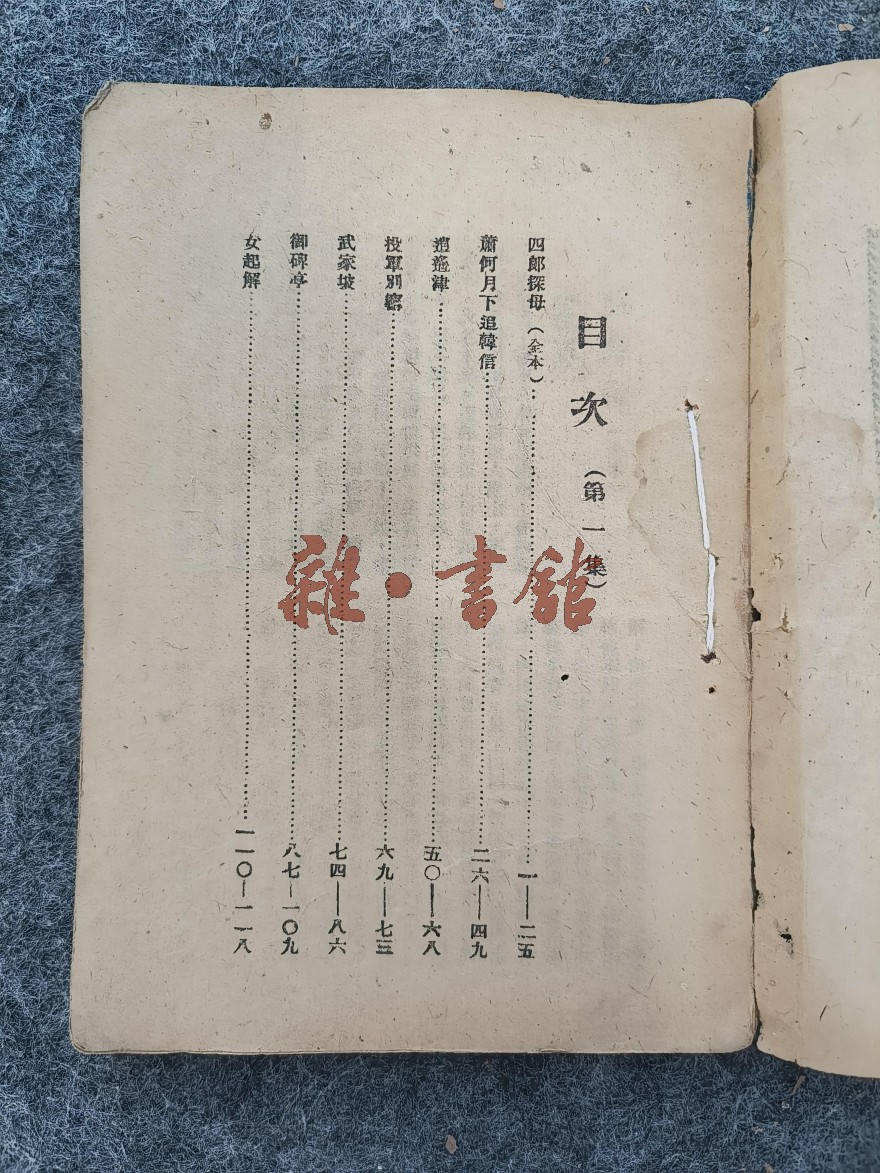 目次（第一集）
四郎探母（全本）……一——二五
蕭何月下追韓信……二六——四九
逍遙津……五〇——六八
投軍別窰……六九——七三
武家坡……七四——八六
御碑亭……八七—一〇九
女起解……一一〇—一一八
雜·書館